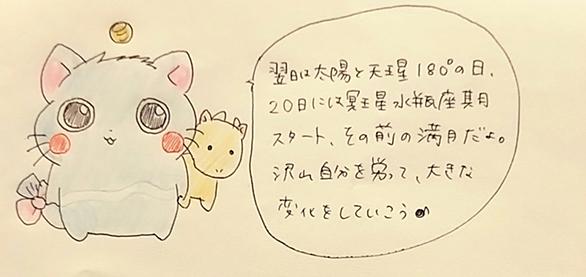 翌日は太陽と天王星180°の日、
20日には冥王星水瓶座期
スタート、その前の満月だよ。
沢山自分を労って、大きな
変化をしていこう♪